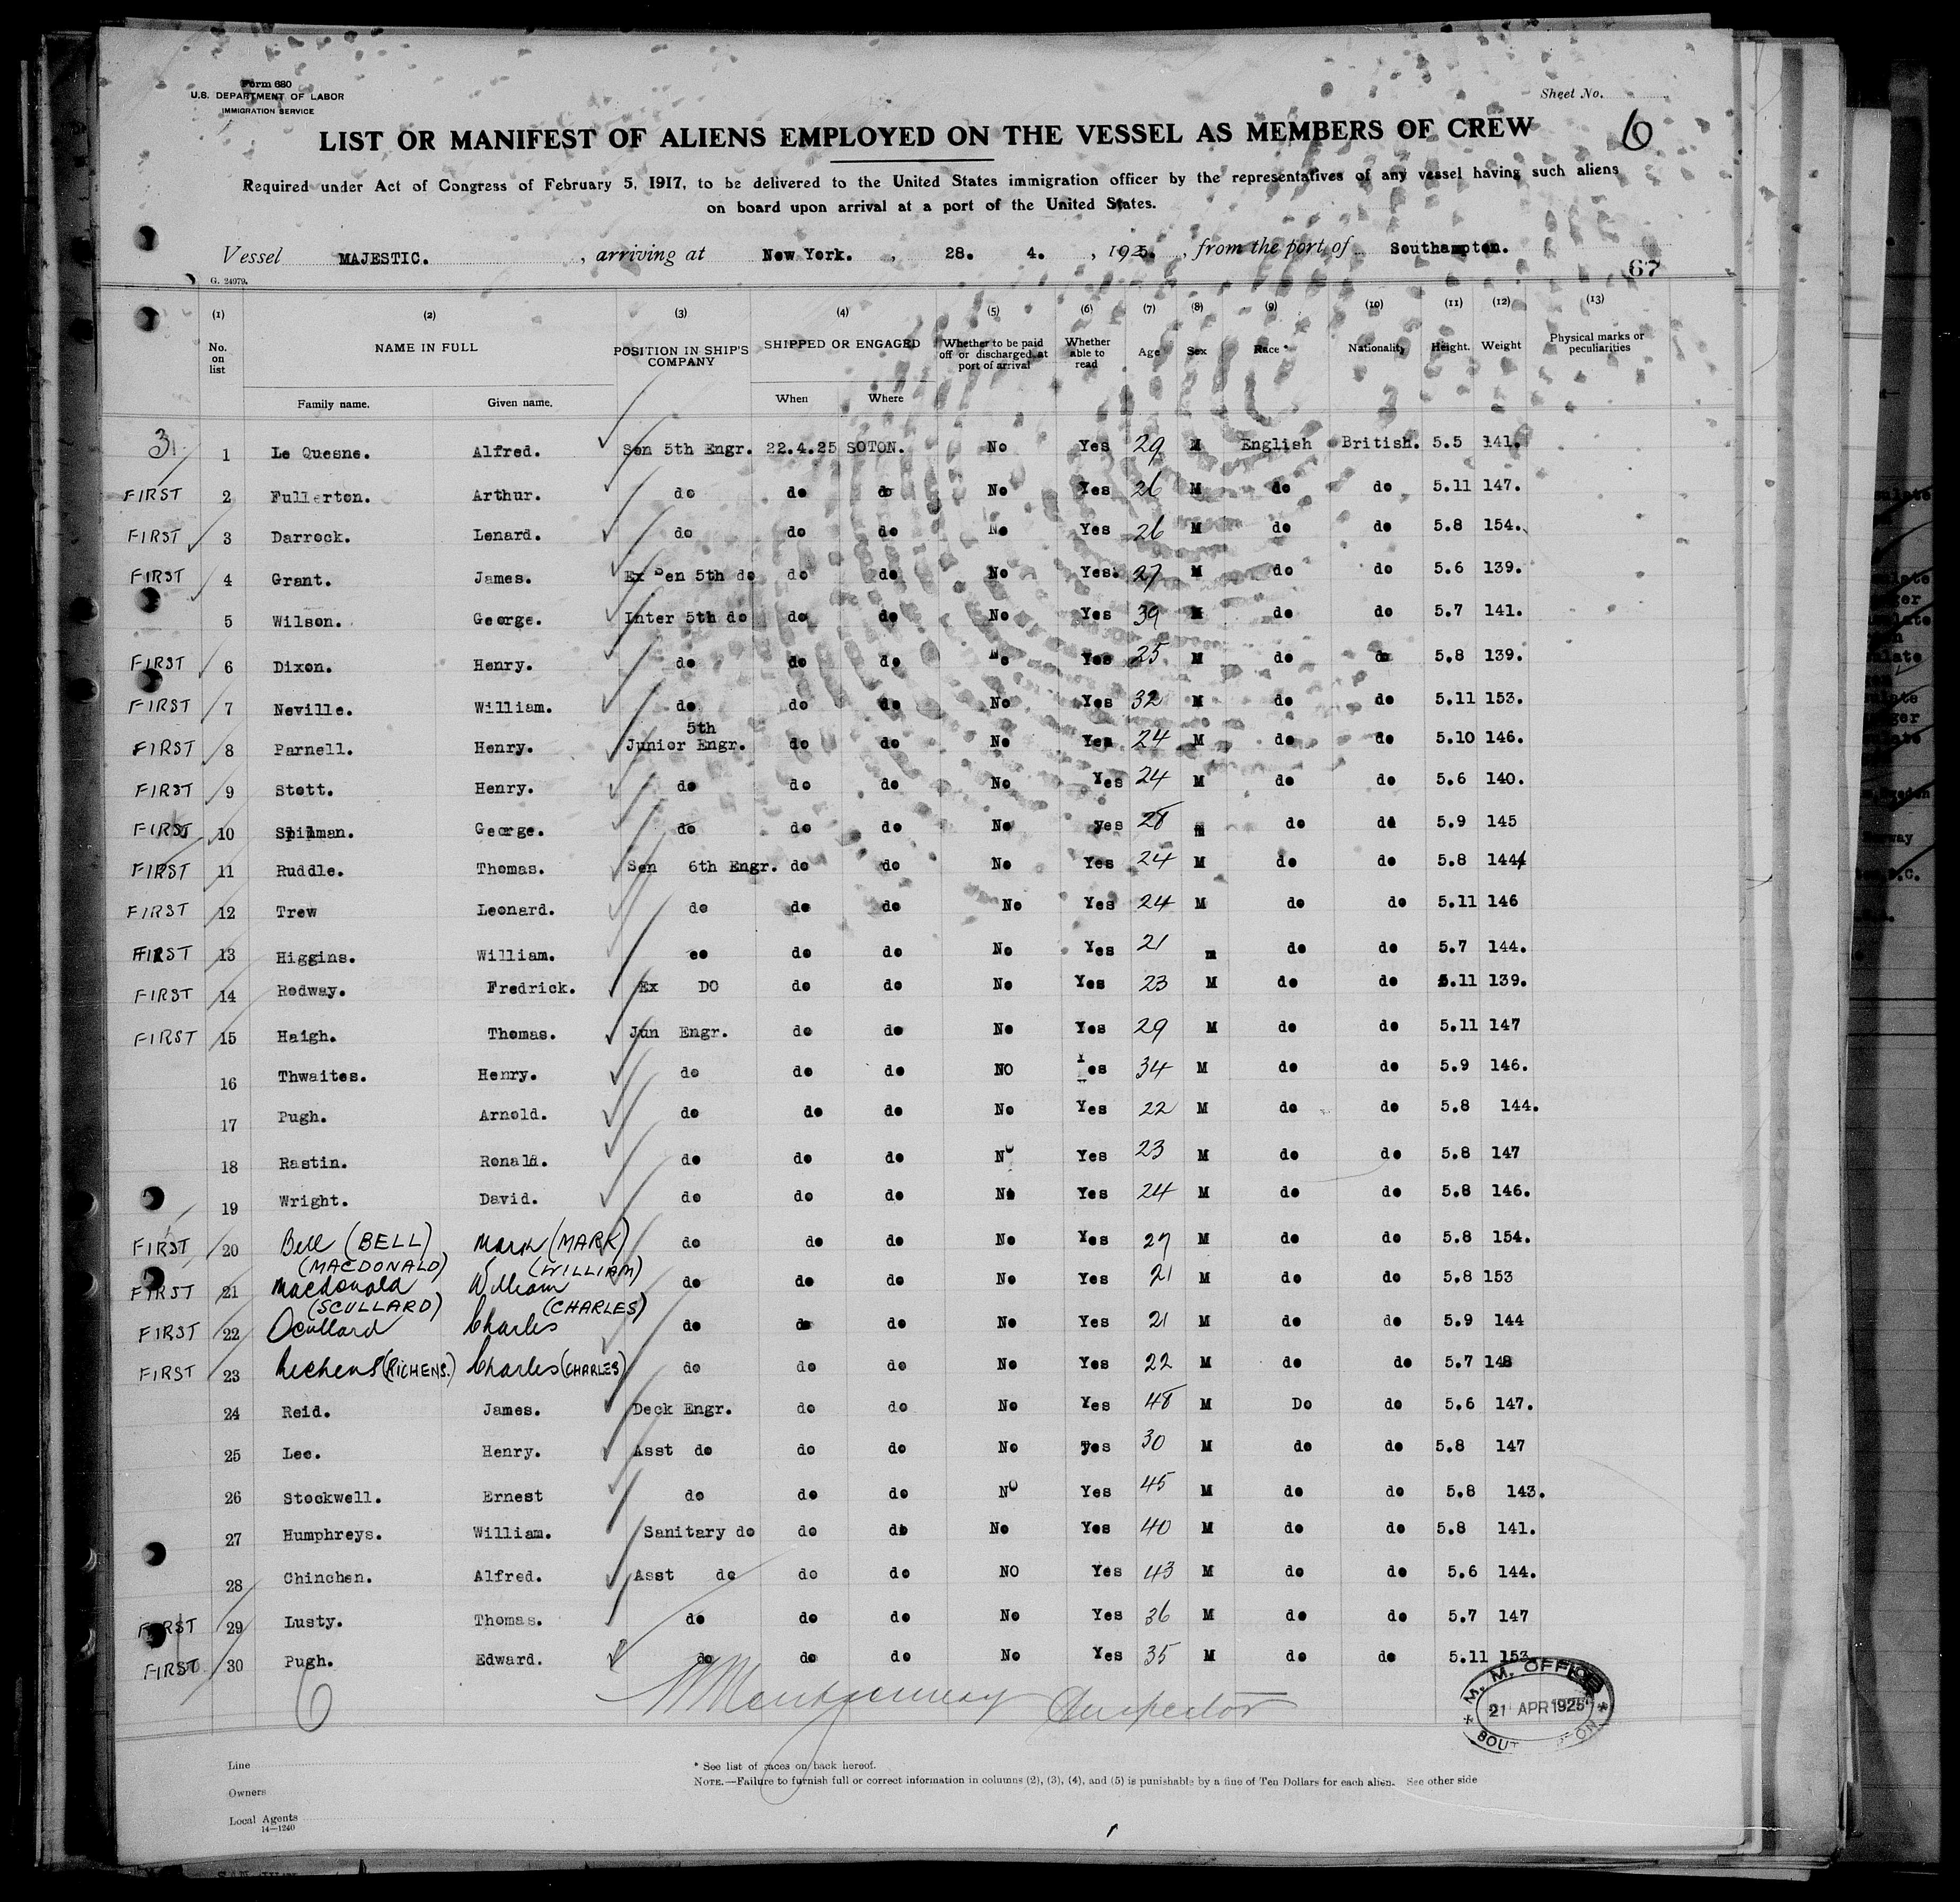 Form 680
U.S. DEPARTMENT OF LABOR
IMMIGRATION SERVICE
Sheet No.
6
LIST OR MANIFEST OF ALIENS EMPLOYED ON THE VESSEL AS MEMBERS OF CREW
Required under Act of Congress of February 5, 1917, to be delivered to the United States immigration officer by the representatives of any vessel having such aliens
on board upon arrival at a port of the United States.
Vessel MAJESTIC. , arriving at New York. , 28. 4. , 1925. , from the port of Southampton.
67
G. 24979.
(1) (2) (3) (4) (5) (6) (7) (8) (9) (10) (11) (12) (13)
No. on list NAME IN FULL POSITION IN SHIP'S COMPANY SHIPPED OR ENGAGED Whether to be paid off or discharged at port of arrival Whether able to read Age Sex Race * Nationality Height. Weight Physical marks or peculiarities
Family name. Given name. When Where
31 1 Le Quesne. Alfred. Sen 5th Engr. 22.4.25 SOTON. No Yes 29 M English British. 5.5 141.
FIRST 2 Fullerton. Arthur. do do do No Yes 26 M do do 5.11 147.
FIRST 3 Darrock. Lenard. do do do No Yes 26 M do do 5.8 154.
FIRST 4 Grant. James. Ex Sen 5th do do do No Yes. 27 M do do 5.6 139.
5 Wilson. George. Inter 5th do do do No Yes 39 M do do 5.7 141.
FIRST 6 Dixon. Henry. do do do No Yes 25 M do do 5.8 139.
FIRST 7 Neville. William. do do do No Yes 32 M do do 5.11 153.
5th
FIRST 8 Parnell. Henry. Junior Engr. do do No Yes 24 M do do 5.10 146.
FIRST 9 Stott. Henry. do do do No Yes 24 M do do 5.6 140.
FIRST 10 Spilman. George. do do do No yes 28 m do do 5.9 145
FIRST 11 Ruddle. Thomas. Sen 6th Engr. do do No Yes 24 M do do 5.8 144
FIRST 12 Trew Leonard. do do do No Yes 24 M do do 5.11 146
FIRST 13 Higgins. William. eo do do No Yes 21 m do do 5.7 144.
FIRST 14 Redway. Fredrick. Ex DO do do No Yes 23 M do do 5.11 139.
FIRST 15 Haigh. Thomas. Jun Engr. do do No Yes 29 M do do 5.11 147
16 Thwaites. Henry. do do do NO Yes 34 M do do 5.9 146.
17 Pugh. Arnold. do do do No Yes 22 M do do 5.8 144.
18 Rastin. Ronald. do do do No Yes 23 M do do 5.8 147
19 Wright. David. do do do No Yes 24 M do do 5.8 146.
FIRST 20 Bell (BELL) Mark (MARK) do do do No Yes 27 M do do 5.8 154.
(MACDONALD) (WILLIAM)
FIRST 21 Macdonald William do do do No Yes 21 M do do 5.8 153
(SCULLARD) (CHARLES)
FIRST 22 Scullard Charles do do do No Yes 21 M do do 5.9 144
FIRST 23 Richens (RICHENS.) Charles (CHARLES) do do do No Yes 22 M do do 5.7 148
24 Reid. James. Deck Engr. do do No Yes 48 M Do do 5.6 147.
25 Lee. Henry. Asst do do do No yes 30 M do do 5.8 147
26 Stockwell. Ernest do do do No Yes 45 M do do 5.8 143.
27 Humphreys. William. Sanitary do do do No Yes 40 M do do 5.8 141.
28 Chinchen. Alfred. Asst do do do NO Yes 43 M do do 5.6 144.
FIRST 29 Lusty. Thomas. do do do No Yes 36 M do do 5.7 147
FIRST 30 Pugh. Edward. do do do No Yes 35 M do do 5.11 153
6
Montgomery Inspector
M. M. OFFICE
21 APR 1925
Line
Owners
Local Agents
14—1240
* See list of races on back hereof.
NOTE.—Failure to furnish full or correct information in columns (2), (3), (4), and (5) is punishable by a fine of Ten Dollars for each alien. See other side